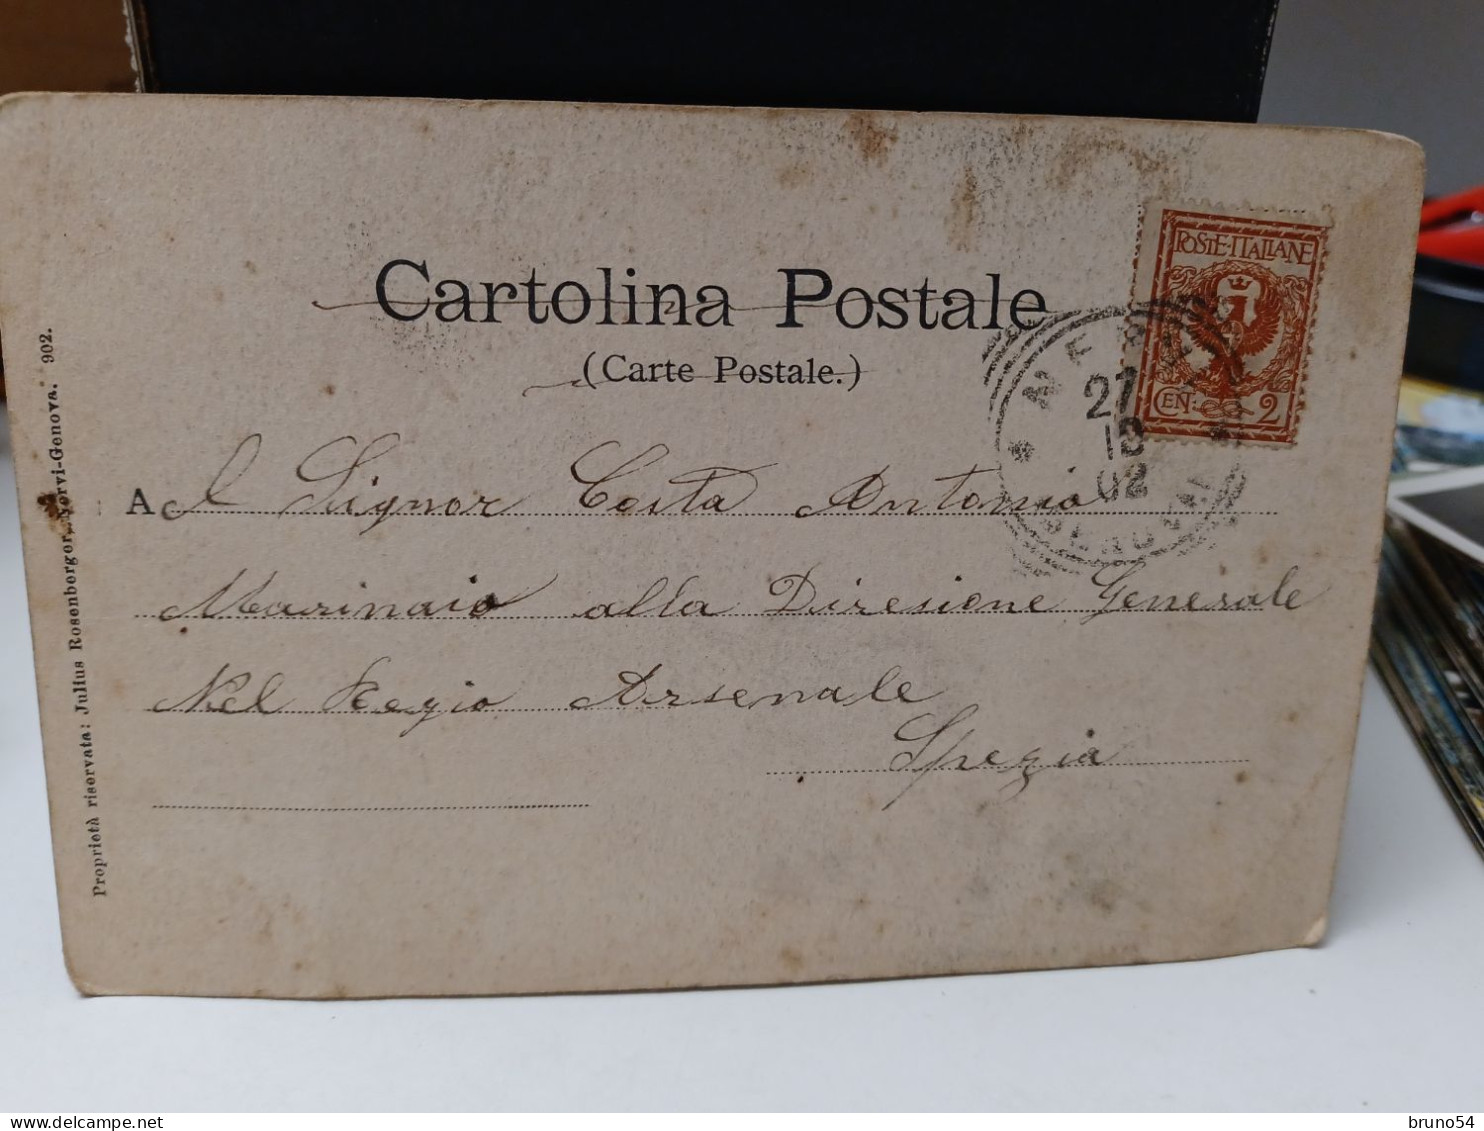 Cartolina Postale
(Carte Postale.)
POSTE·ITALIANE
CEN: 2
27
10
02
GENOVA
Al Signor Costa Antonio
Marinaio alla Diresione Generale
Nel Regio Arsenale
Spezia
Proprietà riservata: Julius Rosenberger, Nervi-Genova. 902.
bruno54